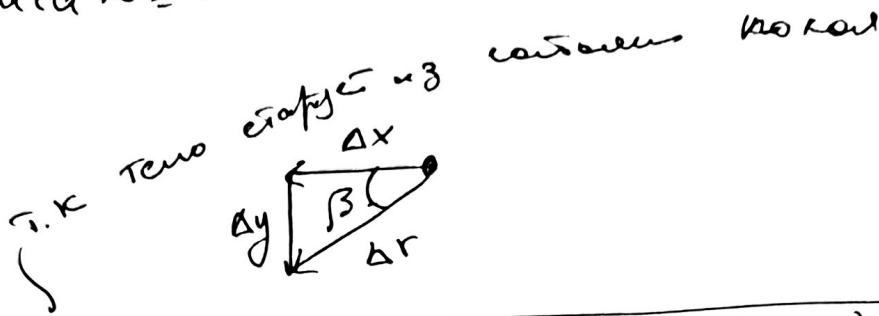 т.к тело стартует из состояния покоя
Δx
Δy β
Δr